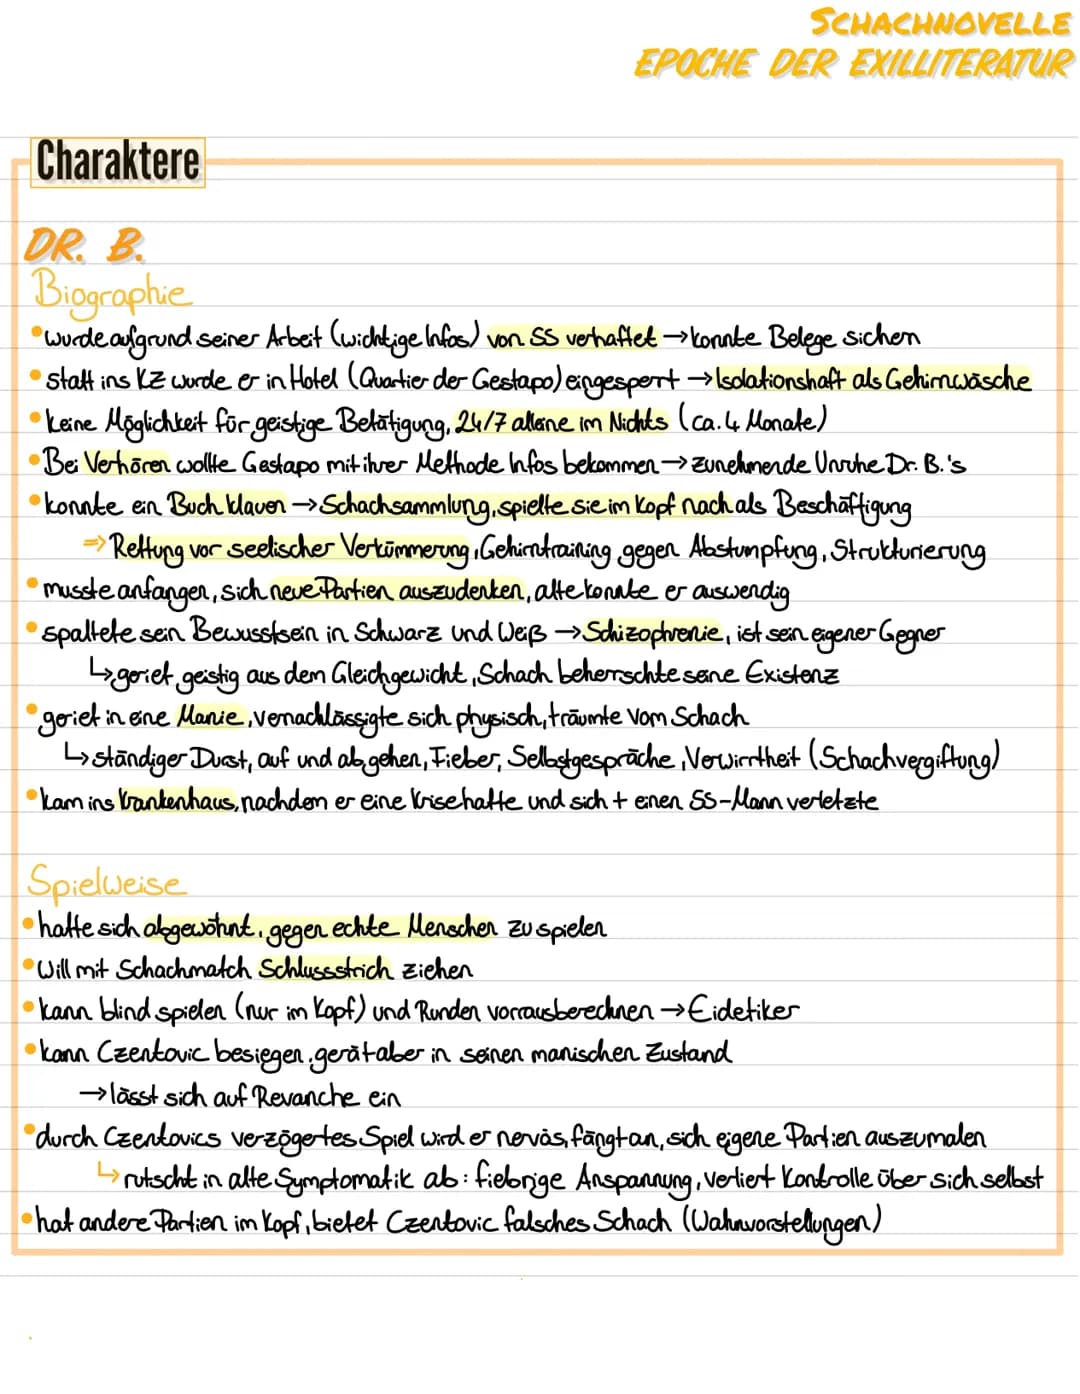 SCHACHNOVELLE
EPOCHE DER EXILLITERATUR
Charaktere
DR. B.
Biographie
• wurde aufgrund seiner Arbeit (wichtige Infos) von SS verhaftet → konnte Belege sichern
• statt ins KZ wurde er in Hotel (Quartier der Gestapo) eingesperrt → Isolationshaft als Gehirnwäsche
• keine Möglichkeit für geistige Betätigung, 24/7 alleine im Nichts (ca. 4 Monate)
• Bei Verhören wollte Gestapo mit ihrer Methode Infos bekommen → zunehmende Unruhe Dr. B.'s
• konnte ein Buch klauen → Schachsammlung, spielte sie im Kopf nach als Beschäftigung
⇒ Rettung vor seelischer Verkümmerung, Gehirntraining gegen Abstumpfung, Strukturierung
• musste anfangen, sich neue Partien auszudenken, alte konnte er auswendig
• spaltete sein Bewusstsein in Schwarz und Weiß → Schizophrenie, ist sein eigener Gegner
↳ geriet geistig aus dem Gleichgewicht, Schach beherrschte seine Existenz
• geriet in eine Manie, vernachlässigte sich physisch, träumte vom Schach
↳ ständiger Durst, auf und ab gehen, Fieber, Selbstgespräche, Verwirrtheit (Schachvergiftung)
• kam ins Krankenhaus, nachdem er eine Krise hatte und sich + einen SS-Mann verletzte
Spielweise
• hatte sich abgewöhnt, gegen echte Menschen zu spielen
• Will mit Schachmatch Schlussstrich ziehen
• kann blind spielen (nur im Kopf) und Runden vorrausberechnen → Eidetiker
• kann Czentovic besiegen, gerät aber in seinen manischen Zustand
→ lässt sich auf Revanche ein
• durch Czentovics verzögertes Spiel wird er nervös, fängt an, sich eigene Partien auszumalen
↳ rutscht in alte Symptomatik ab: fiebrige Anspannung, verliert Kontrolle über sich selbst
• hat andere Partien im Kopf, bietet Czentovic falsches Schach (Wahnvorstellungen)